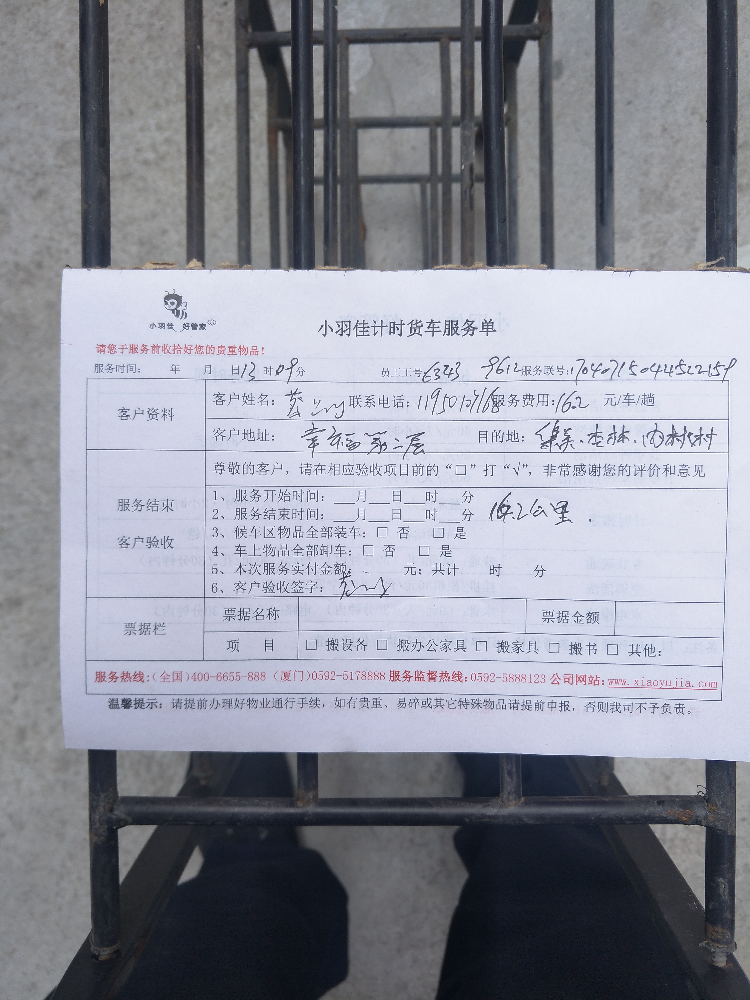 小羽佳 好管家
小羽佳计时货车服务单
请您于服务前收拾好您的贵重物品!
服务时间: 年 月 日13时09分 员工工号6343 9612服务联号:17040715044522159
客户资料
客户姓名: 联系电话: 服务费用:162 元/车/趟
客户地址: 幸福第二层 目的地: 集美.杏林.内林村
服务结束
客户验收
尊敬的客户,请在相应验收项目前的“□”打“√”,非常感谢您的评价和意见
1、服务开始时间:___月___日___时___分
2、服务结束时间:___月___日___时___分 16.2公里.
3、候车区物品全部装车:□ 否 □ 是
4、车上物品全部卸车:□ 否 □ 是
5、本次服务实付金额: 元;共计 时 分
6、客户验收签字:
票据栏
票据名称 票据金额
项 目 □ 搬设备 □ 搬办公家具 □ 搬家具 □ 搬书 □ 其他:
服务热线:(全国)400-6655-888 (厦门)0592-5178888 服务监督热线:0592-5888123 公司网站:www.xiaoyujia.com
温馨提示:请提前办理好物业通行手续,如有贵重、易碎或其它特殊物品请提前申报,否则我司不予负责。